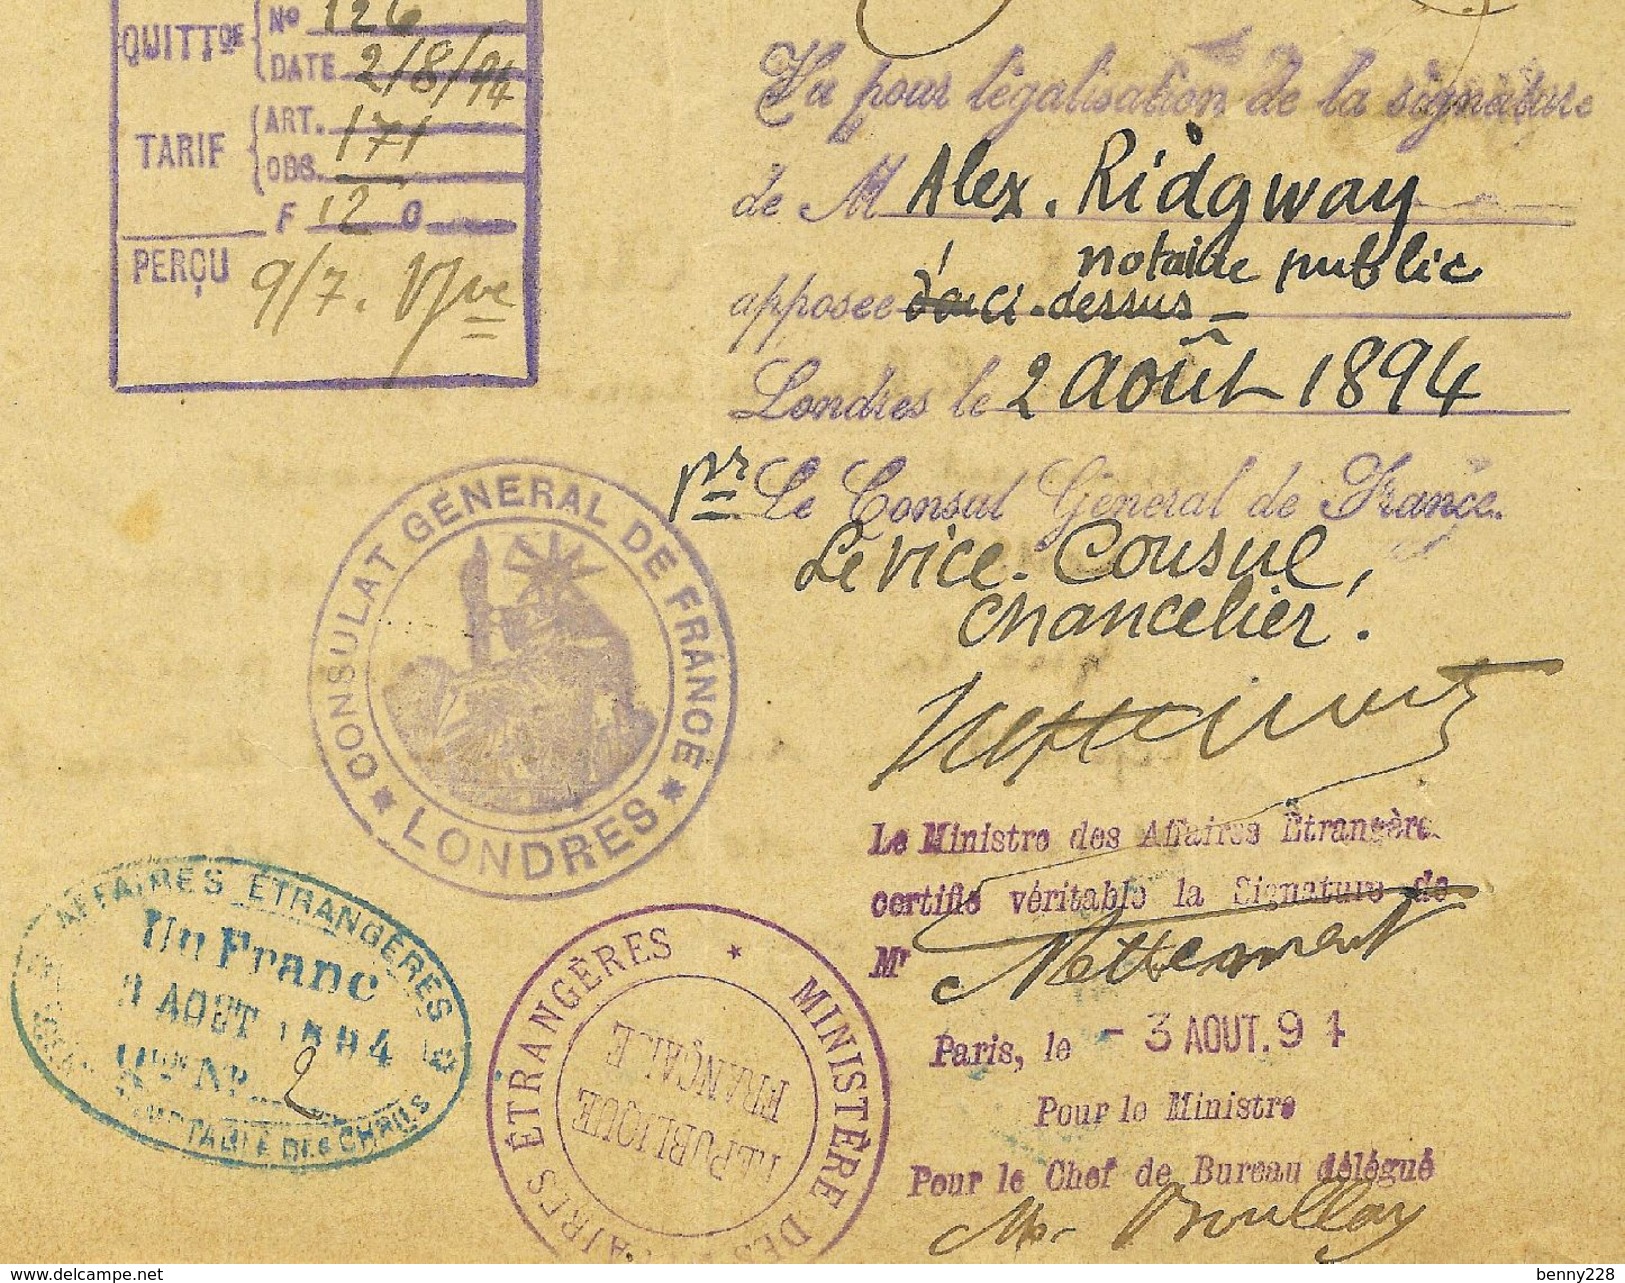 QUITTCE Nº 126
DATE 2/8/94
TARIF ART. 171
OBS.
F 12 C
PERÇU 9/7.
Vu pour légalisation de la signature
de M Alex. Ridgway
notaire public
apposée ci-dessus
Londres le 2 août 1894
pr Le Consul Général de France.
Le vice-Consul,
chancelier.
CONSULAT GÉNÉRAL DE FRANCE
* LONDRES *
Le Ministre des Affaires Étrangère
certifie véritable la Signature de
Mr Nettement
Paris, le - 3 AOUT. 94
Pour le Ministre
Pour le Chef de Bureau délégué
AFFAIRES ÉTRANGÈRES
Un Franc
AOUT 1894
Nº 2
COMPTABLE DES CHAUS
MINISTÈRE DES AFFAIRES ÉTRANGÈRES *
RÉPUBLIQUE
FRANÇAISE
www.delcampe.net
benny228